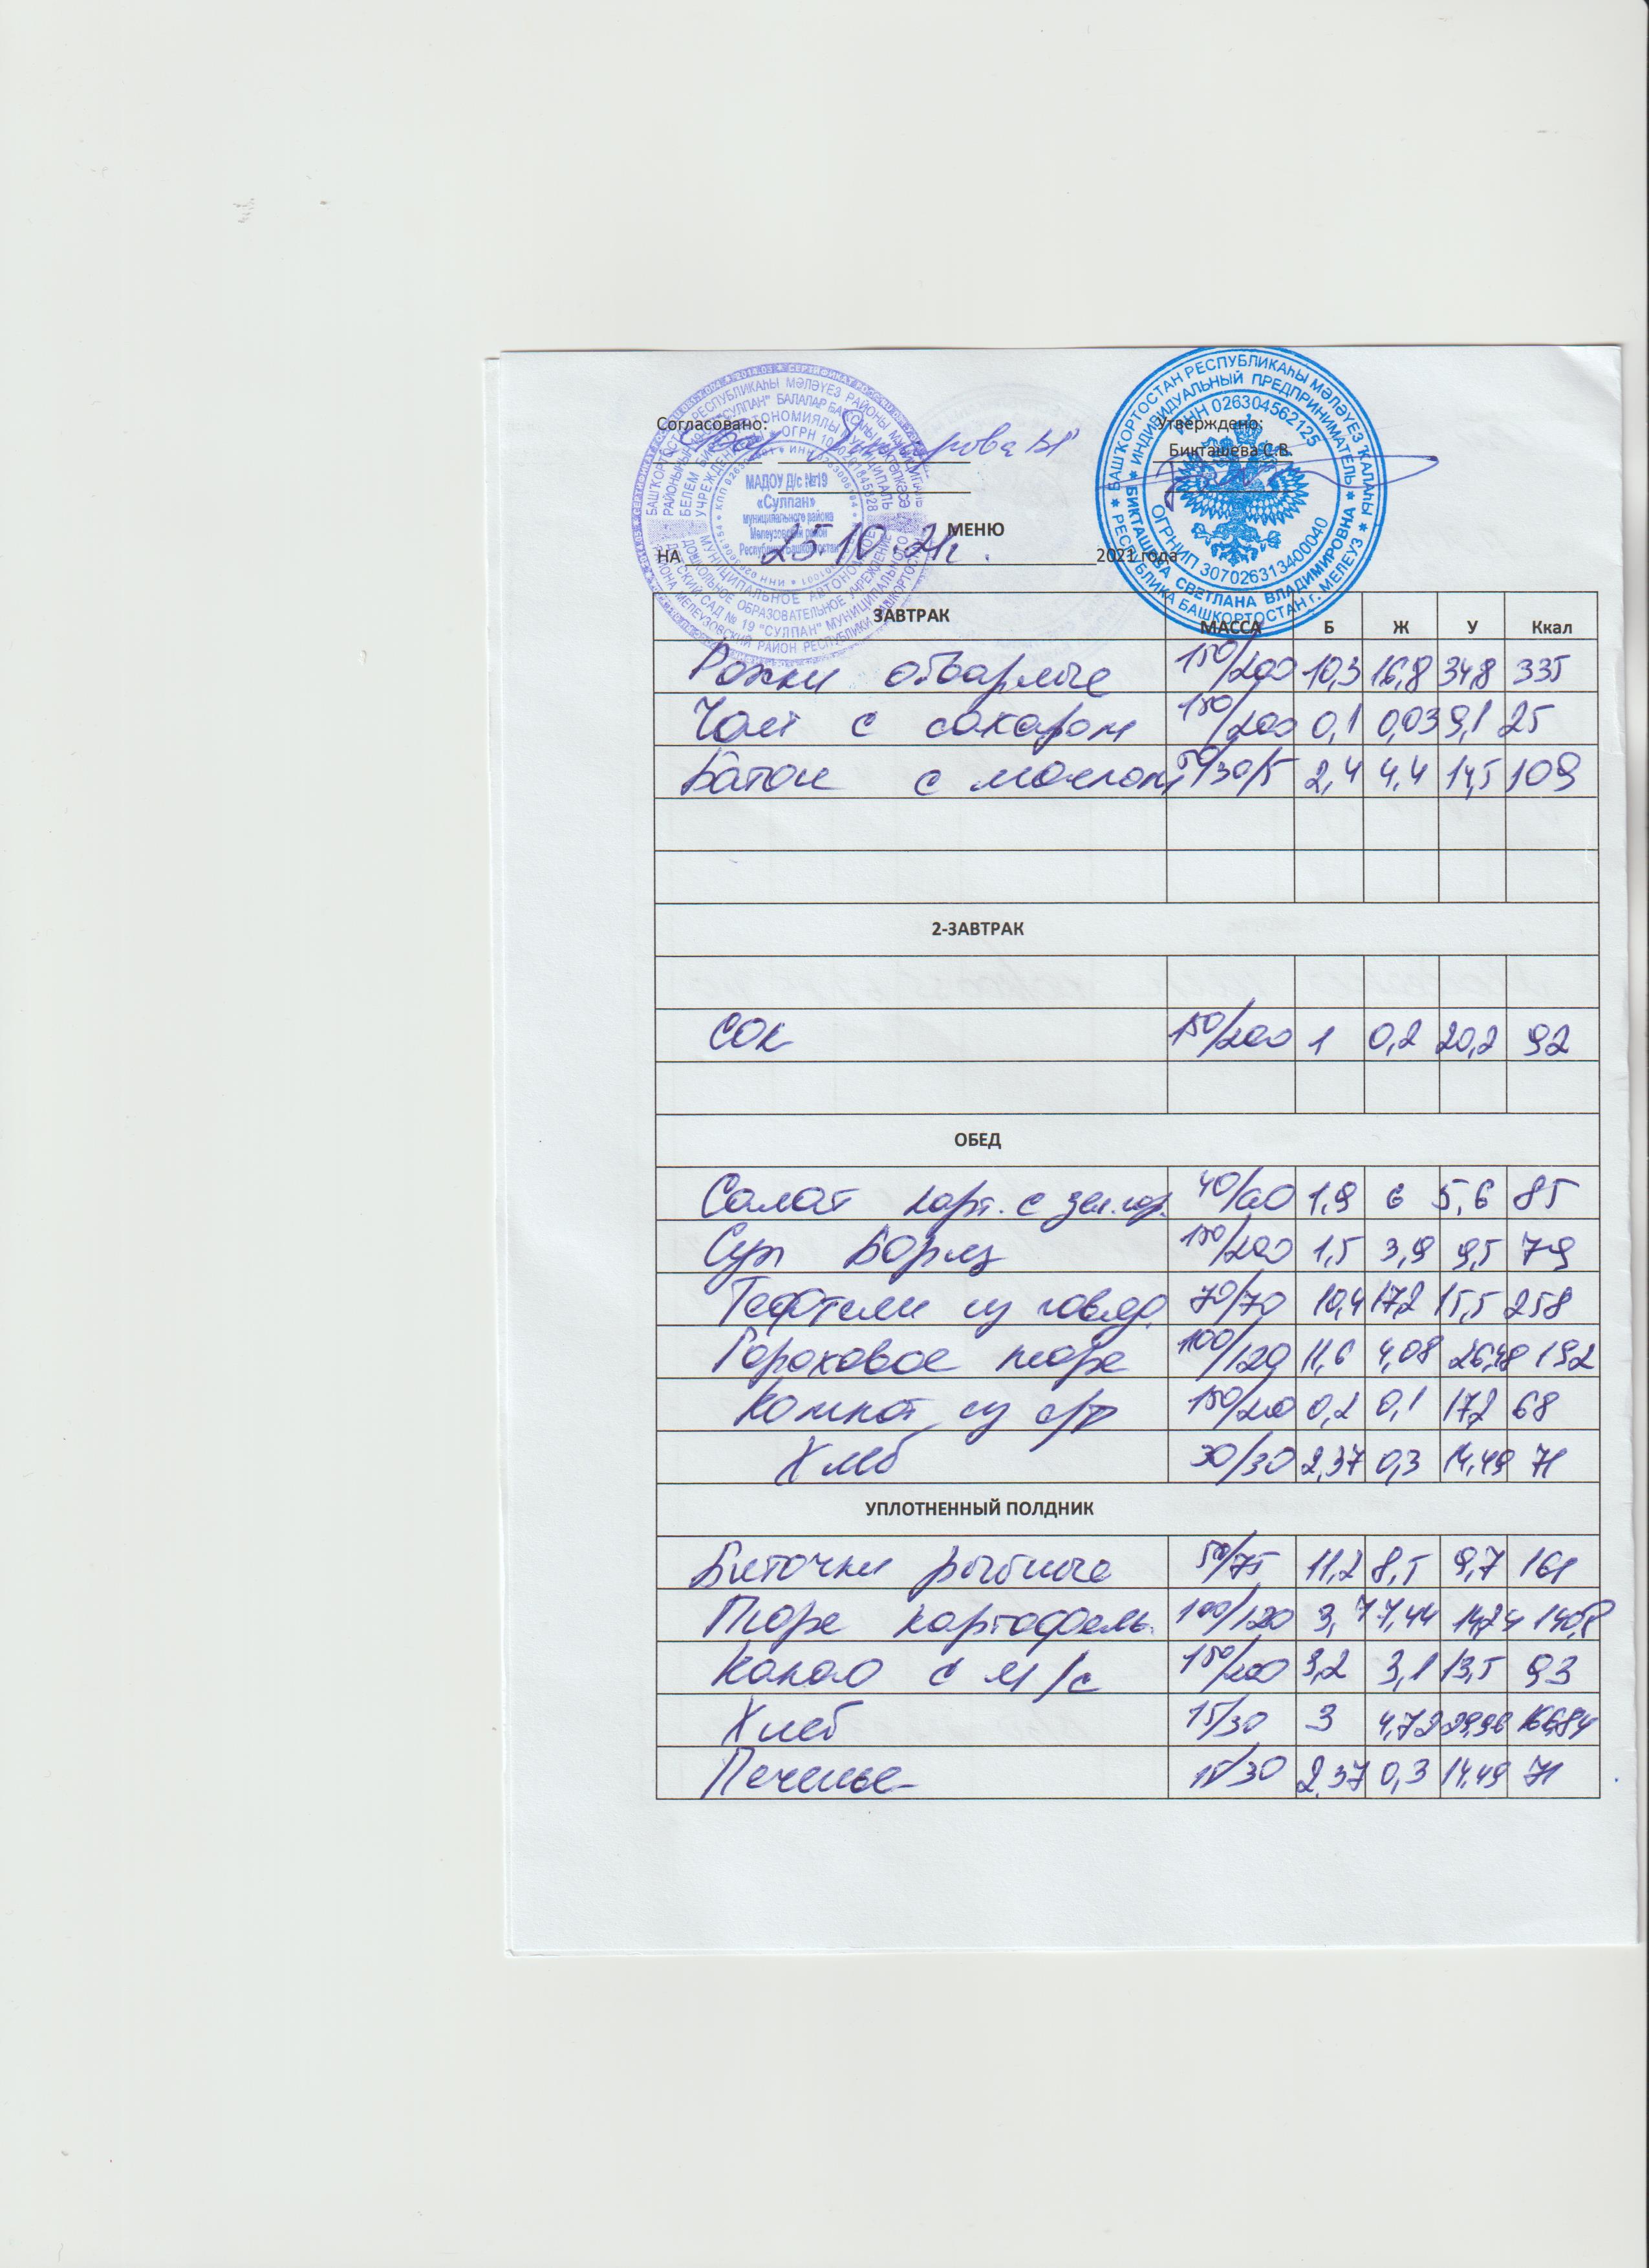 Согласовано: Утверждено:
Бикташева С.В.
МАДОУ Д/с №19
«Сулпан»
муниципального района
Мелеузовский район
Республики Башкортостан
БАШҠОРТОСТАН РЕСПУБЛИКАҺЫ МӘЛӘҮЕЗ ҠАЛАҺЫ
РЕСПУБЛИКА БАШКОРТОСТАН г. МЕЛЕУЗ
ИНДИВИДУАЛЬНЫЙ ПРЕДПРИНИМАТЕЛЬ
БИКТАШЕВА СВЕТЛАНА ВЛАДИМИРОВНА
ИНН 026304562125
ОГРНИП 307026313400040
МЕНЮ
НА 25.10.21г. 2021 года
ЗАВТРАК МАССА Б Ж У Ккал
Рожки отварные 150/200 10,3 16,8 34,8 335
Чай с сахаром 150/200 0,1 0,03 9,1 25
Батон с маслом 30/5 2,4 4,4 14,5 109
2-ЗАВТРАК
Сок 150/200 1 0,2 20,2 92
ОБЕД
Салат карт. с зел.гор. 40/60 1,9 6 5,6 85
Суп Борщ 150/200 1,5 3,9 9,5 79
Тефтели из говяд. 70/70 10,4 17,2 15,5 258
Гороховое пюре 100/120 11,6 4,08 26,48 192
Компот из с/ф 150/200 0,2 0,1 17,2 68
Хлеб 30/30 2,37 0,3 14,49 71
УПЛОТНЕННЫЙ ПОЛДНИК
Биточки рыбные 50/75 11,2 8,5 9,7 161
Пюре картофель. 100/120 3,7 7,44 14,24 140,8
Какао с м/с 150/200 3,2 3,1 13,5 93
Хлеб 15/30 3 4,72 29,96 166,84
Печенье 15/30 2,37 0,3 14,49 71